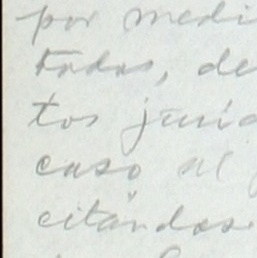 por medi
todos, de
tos juríd
caso al
citándose